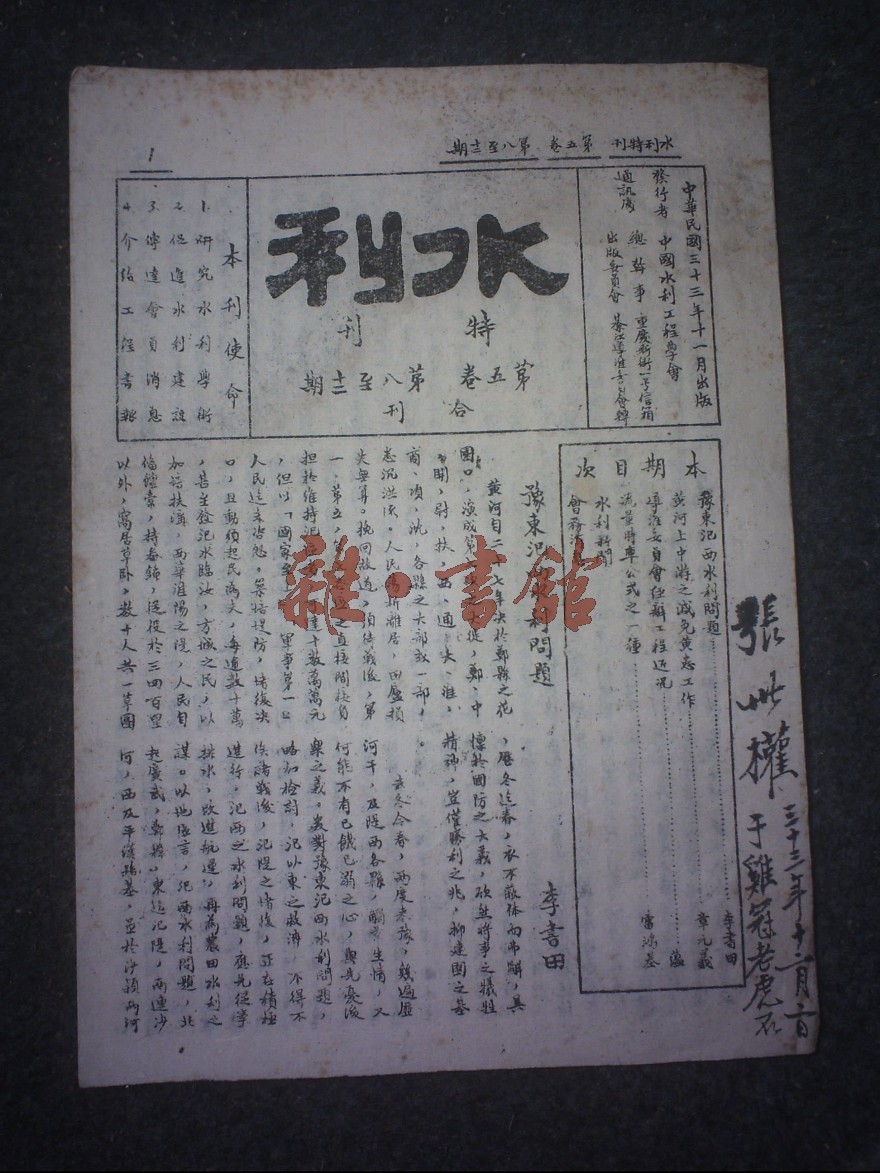 水利特刊 第五卷 第八至十二期
1
中華民國三十三年十一月出版
發行者 中國水利工程學會
總幹事 重慶新街一号信箱
通訊處
出版委員會 綦江導淮委員會轉
水利
特刊
第五卷第八至十二期
合刊
本刊使命
1. 研究水利學術
2. 促進水利建設
3. 傳達會員消息
4. 介紹工程書報
本期目次
豫東汜西水利問題 李書田
黃河上中游之減免黃患工作 章元羲
導淮委員會經辦工程近況
流量特率公式之一種 雷鴻基
水利新聞
會務消息
豫東汜西水利問題
李書田
黃河自二十七年決於鄭縣之花
園口,演成第
開,尉,扶,西,通,太,淮,
商,項,沈,各縣之大部或一部,
悉沉洪流。人民蕩析離居,田廬損
失無算。挽回故道,須待戰後,第
一、第五,
担於維持汜 達十數萬萬元
,但以「國家至上 軍事第一」
人民迄未咨怨,築培堤防,堵復決
口,且動輒起民為夫,每逾數十萬
,甚至餘汜水臨汝,方城之民,以
加培扶溝,西華淮陽之堤,人民自
備饘橐,持畚鍤,從役於三四百里
以外,窩居草卧,數十人共一草團
,歷冬迄春,衣不蔽体而弗辭,其
懷於國防之大義,欣然將事之犧牲
精神,豈僅勝利之兆,抑建國之基
。
去冬今春,兩度來豫,幾遍歷
河干,及堤西各縣,觸景生情,又
何能不有己饑己溺之心,與先憂後
樂之義。爰對豫東汜西水利問題,
略加檢討,汜以東之救濟 不得不
俟諸戰後,汜堤之堵復,正在積極
進行,汜西之水利問題,應先從宰
排水,改進航運,再為農田水利之
謀。以地區言,汜西水利問題,北
起廣武,鄭縣,東迄汜堤,西連沙
河,西及平漢路基,並於沙潁兩河
張
權
三十三年十二月二日
于雞冠老虎石
雜·書館